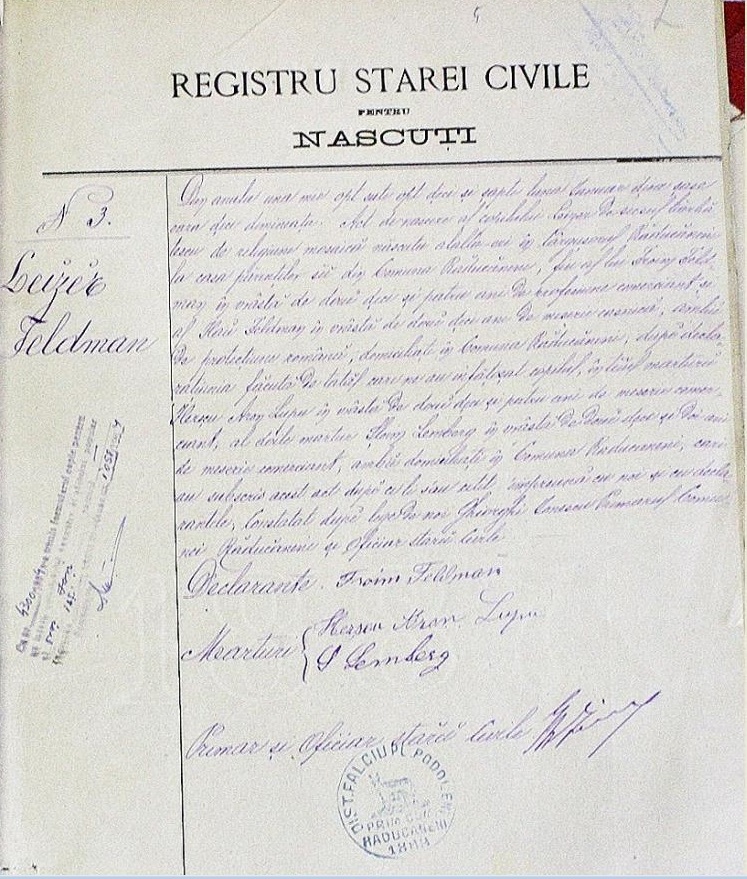 REGISTRU STAREI CIVILE
PENTRU
NASCUȚI
N 3.
Leizer
Feldman
Din anulu una mie opt sute opt deci si sapte luna Ianuar dioa sasa
ora dece diminiata. Act de nascere al copilului Leizer de secsul barbă
tescu de religiune mosaică născutu alaltă-eri in târgusorul Răducăneni
la casa părinților săi din Comuna Răducăneni, fiu al lui Froim Feld
man in vrăstă de două deci și patru ani de profesiune comerciant și
al Feldman in vrăstă de două deci ani de meserie casnică, ambii
de protecțiune română, domiciliate in Comuna Răducăneni, după decla
rațiunia făcută de tatăl care ne au infățișat copilul, in tăiul marturu
Herscu Aron Lupu in văstă de două deci și patru ani de meserie comer
ciant, al doile martur Sloim Lemberg in vrăstă de două deci și doi ani
de meserie comerciant, ambii domiciliați in Comuna Raducaneni, cari
au subscris acest act după ce li sau citit impreună cu noi și cu decla
rantele, Constatat după lege de noi Gheorghe Ionescu Primarul Comu
nei Răducăneni și Oficiar stării Civile
Declarante Froim Feldman
Marturi { Herscu Aron Lupu
S Lemberg
Primar și Oficiar stării Civile
DIST. FALCIU PL. PODOLENI
PRIM. COM.
RADUCANENI